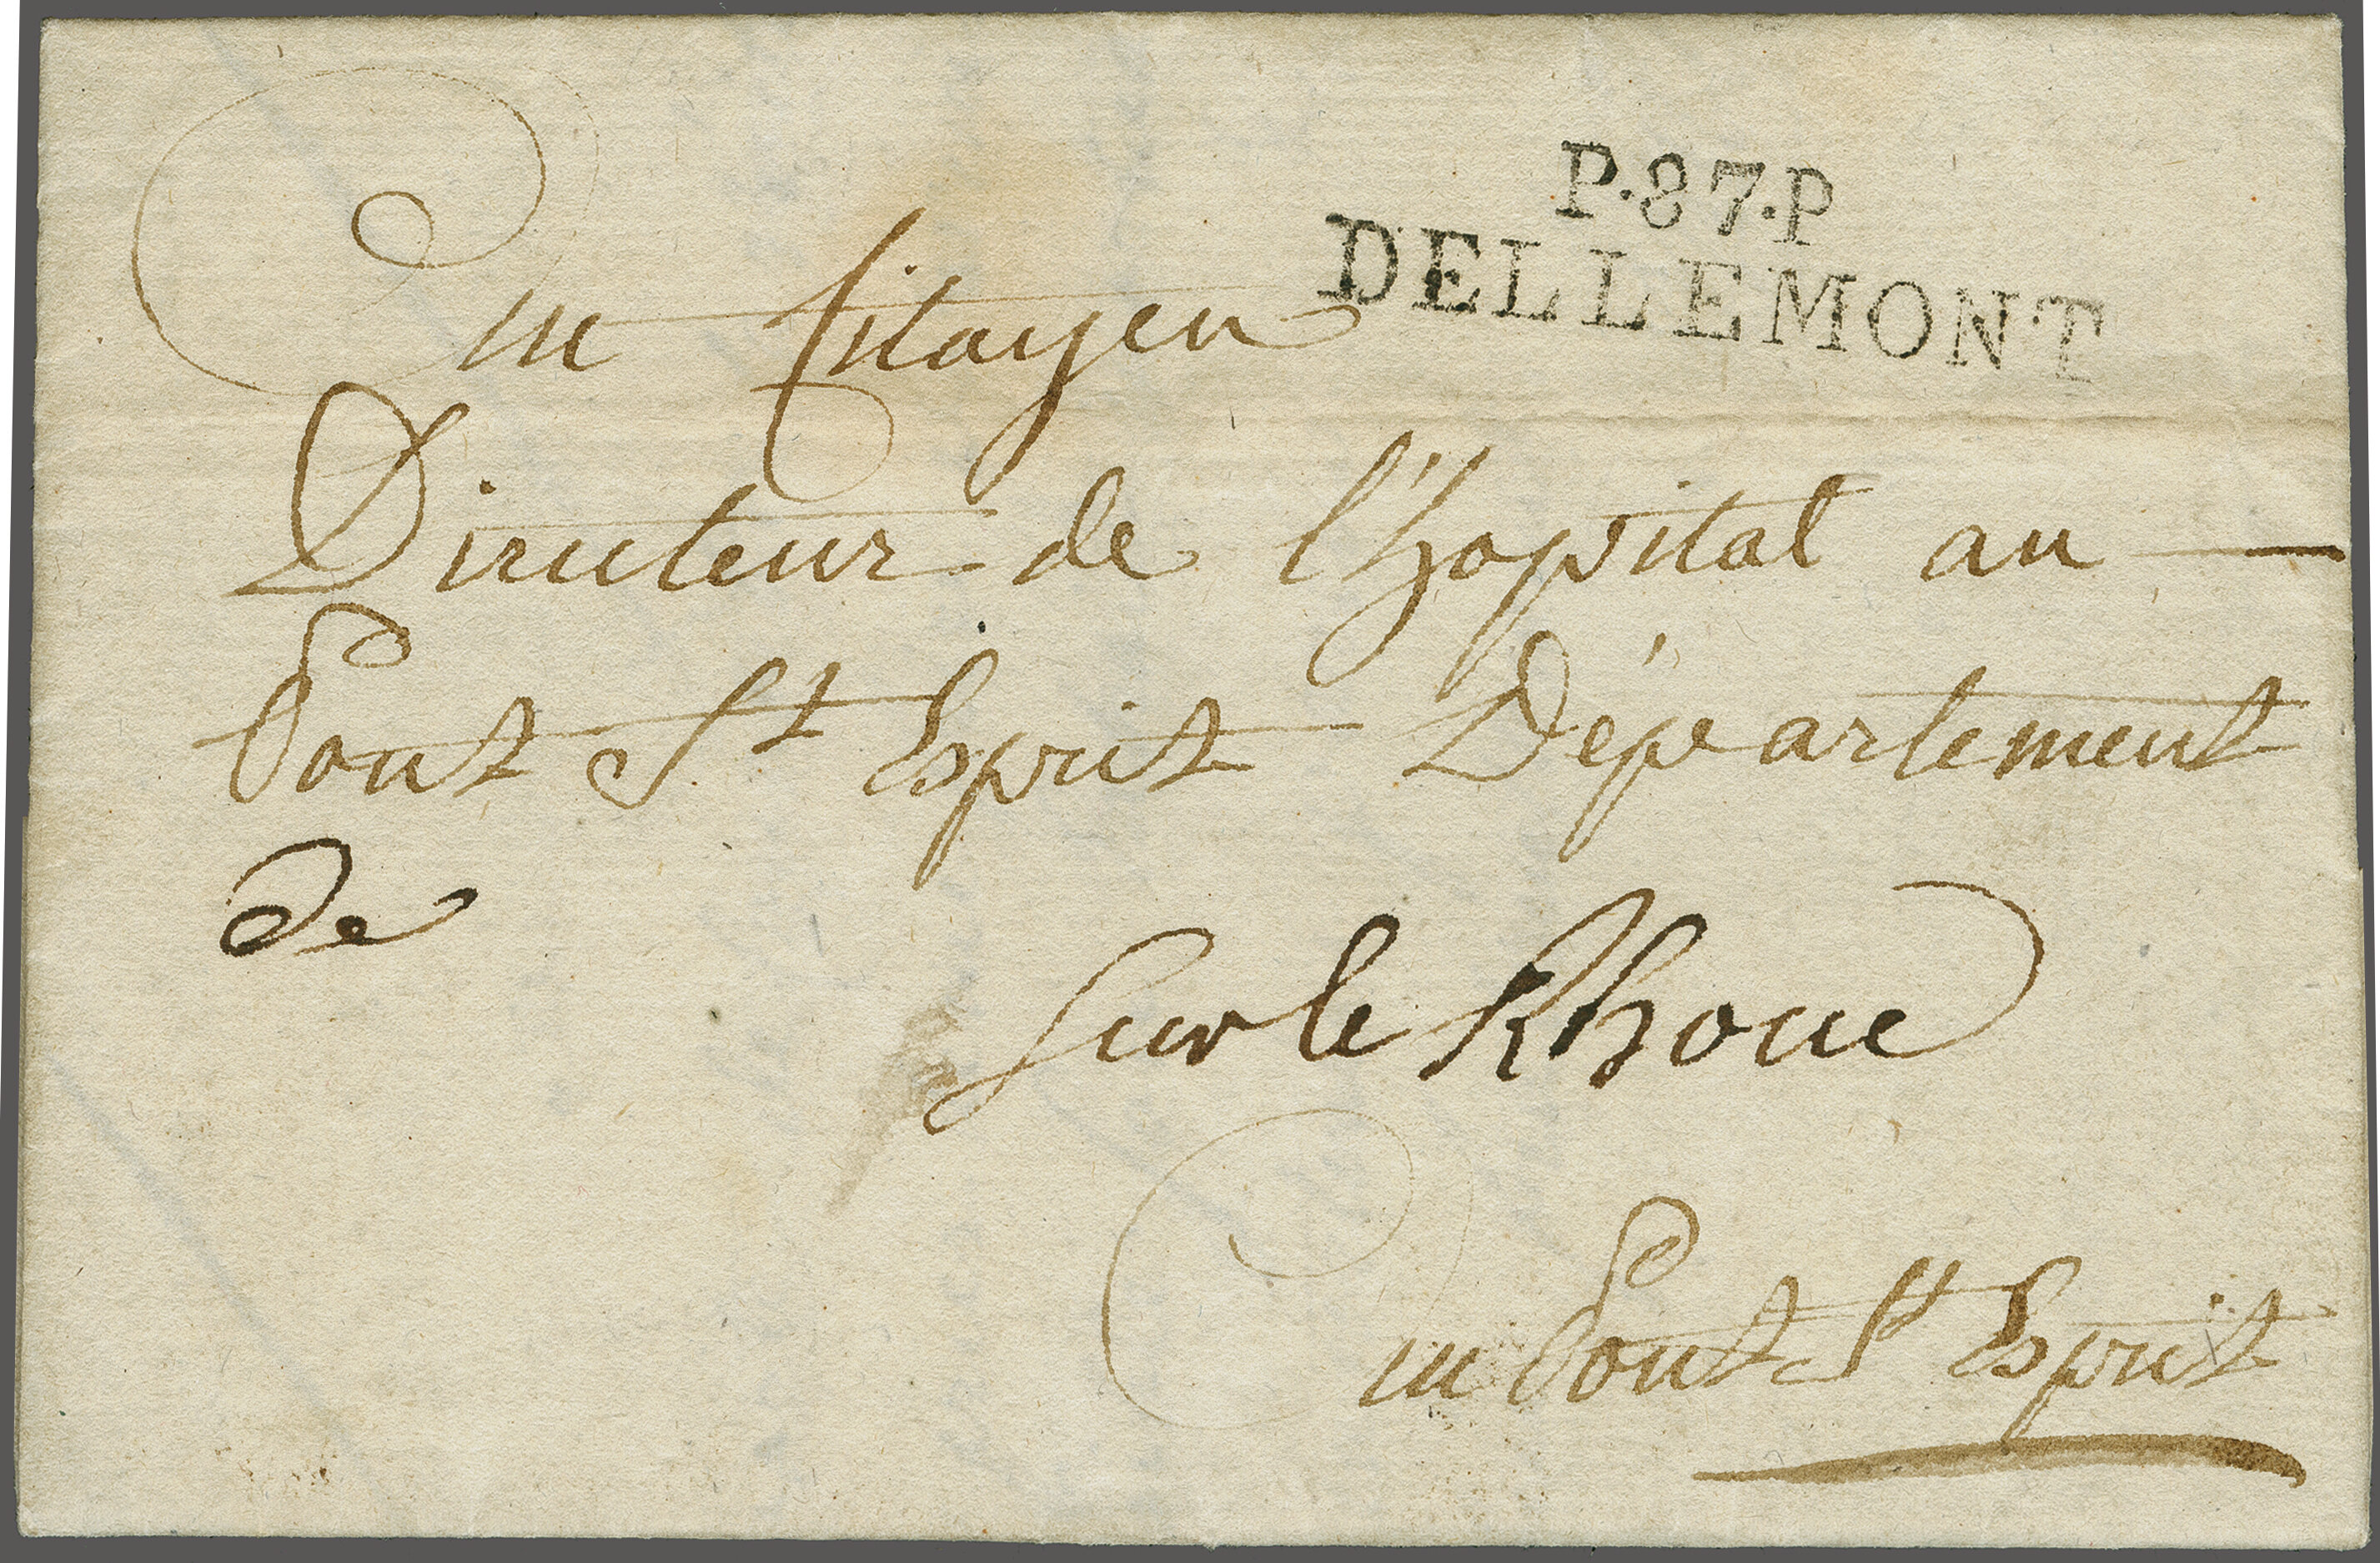 P.87.P
DELLEMONT
Au Citoyen
Directeur de l'hopital au
Pont St Esprit Département
de
Sur le Rhone
au Pont St Esprit